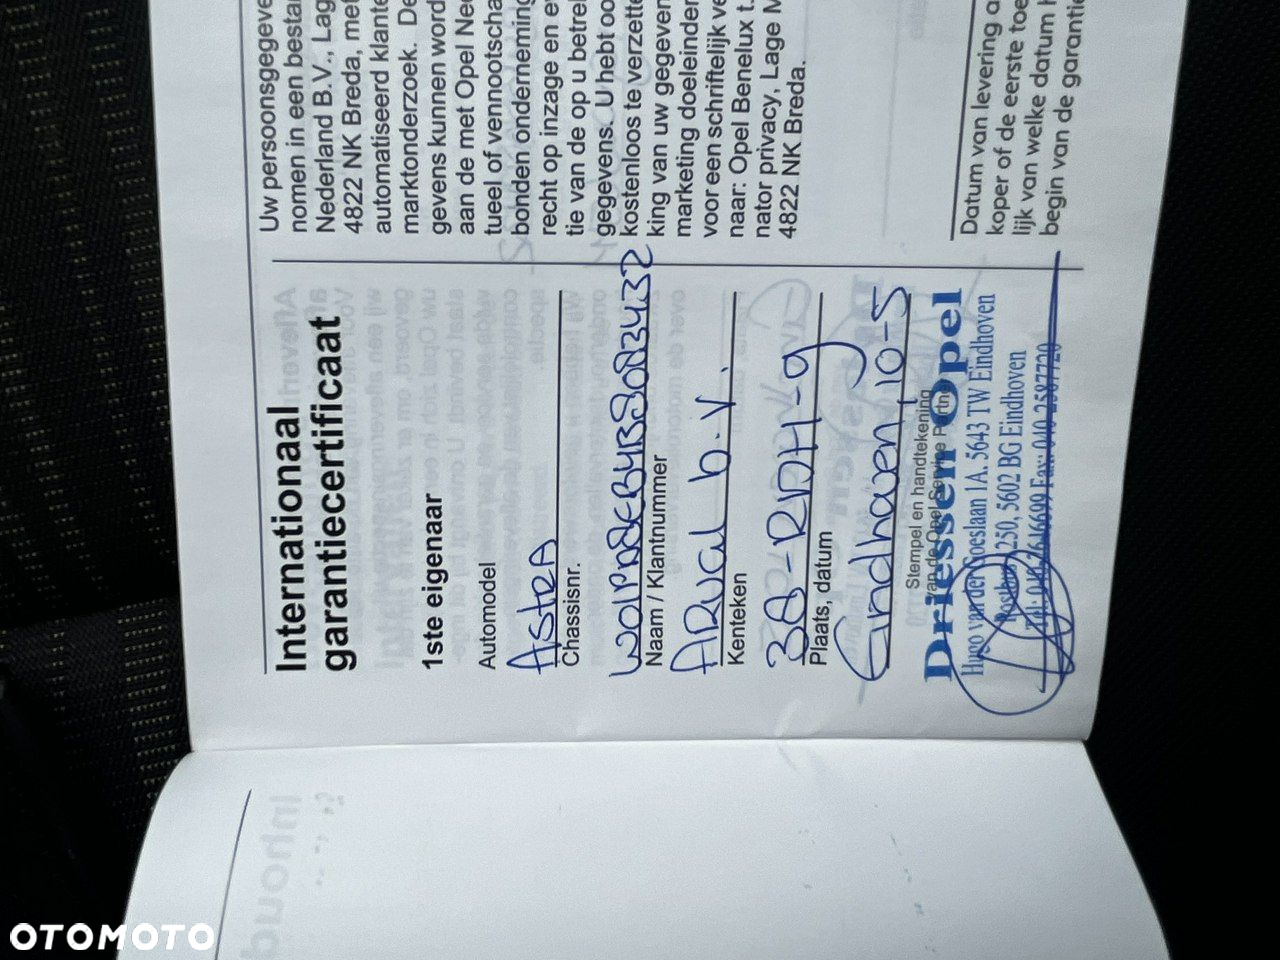 Internationaal
garantiecertificaat
1ste eigenaar
Automodel
Astra
Chassisnr.
Naam / Klantnummer
Arval b.v.
Kenteken
Plaats, datum
Eindhoven, 10-5
Stempel en handtekening
van de Opel Service Partner
Driessen Opel
Hugo van der Goeslaan 1A, 5643 TW Eindhoven
Postbus 250, 5602 BG Eindhoven
Tel: 040-2616699 Fax: 040-2587720
Uw persoonsgegeve
nomen in een bestan
Nederland B.V., Lag
4822 NK Breda, met
automatiseerd klante
marktonderzoek. De
gevens kunnen word
aan de met Opel Ned
tueel of vennootscha
bonden onderneming
recht op inzage en ev
tie van de op u betrek
gegevens. U hebt oo
kosteloos te verzette
king van uw gegeven
marketing doeleinden
voor een schriftelijk ve
naar: Opel Benelux t.
nator privacy, Lage M
4822 NK Breda.
Datum van levering a
koper of de eerste toe
lijk van welke datum h
begin van de garantie
OTOMOTO